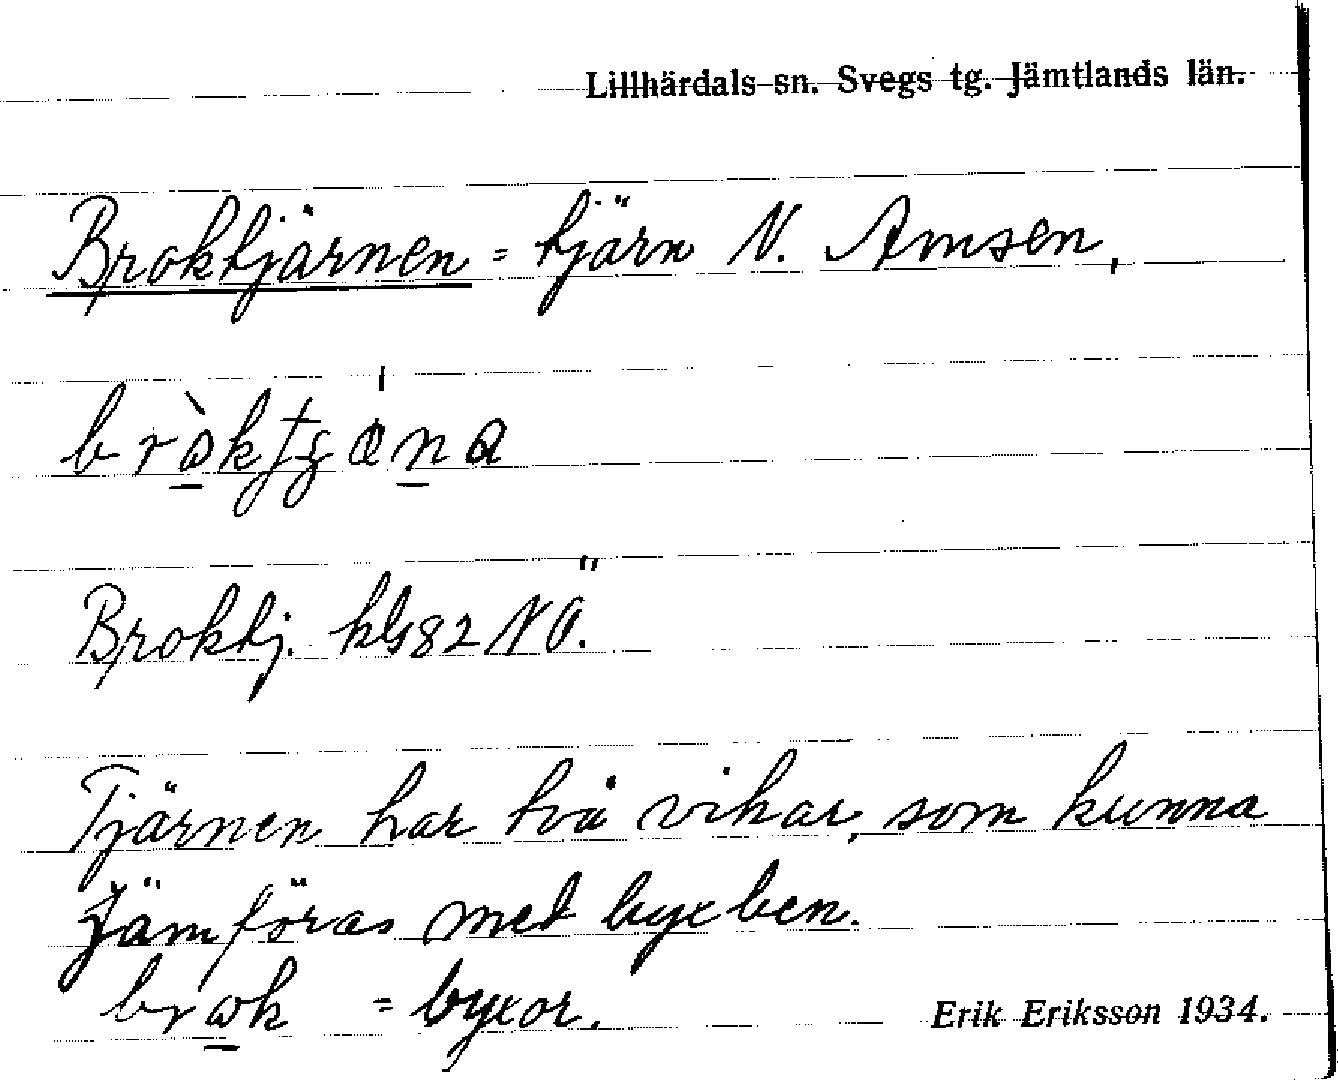 Lillhärdals sn. Svegs tg. Jämtlands län.
Broktjärnen = tjärn N. Amsen,
Broktj. kG82 NÖ.
Tjärnen har två vikar, som kunna
jämföras med byxben.
= byxor.
Erik Eriksson 1934.